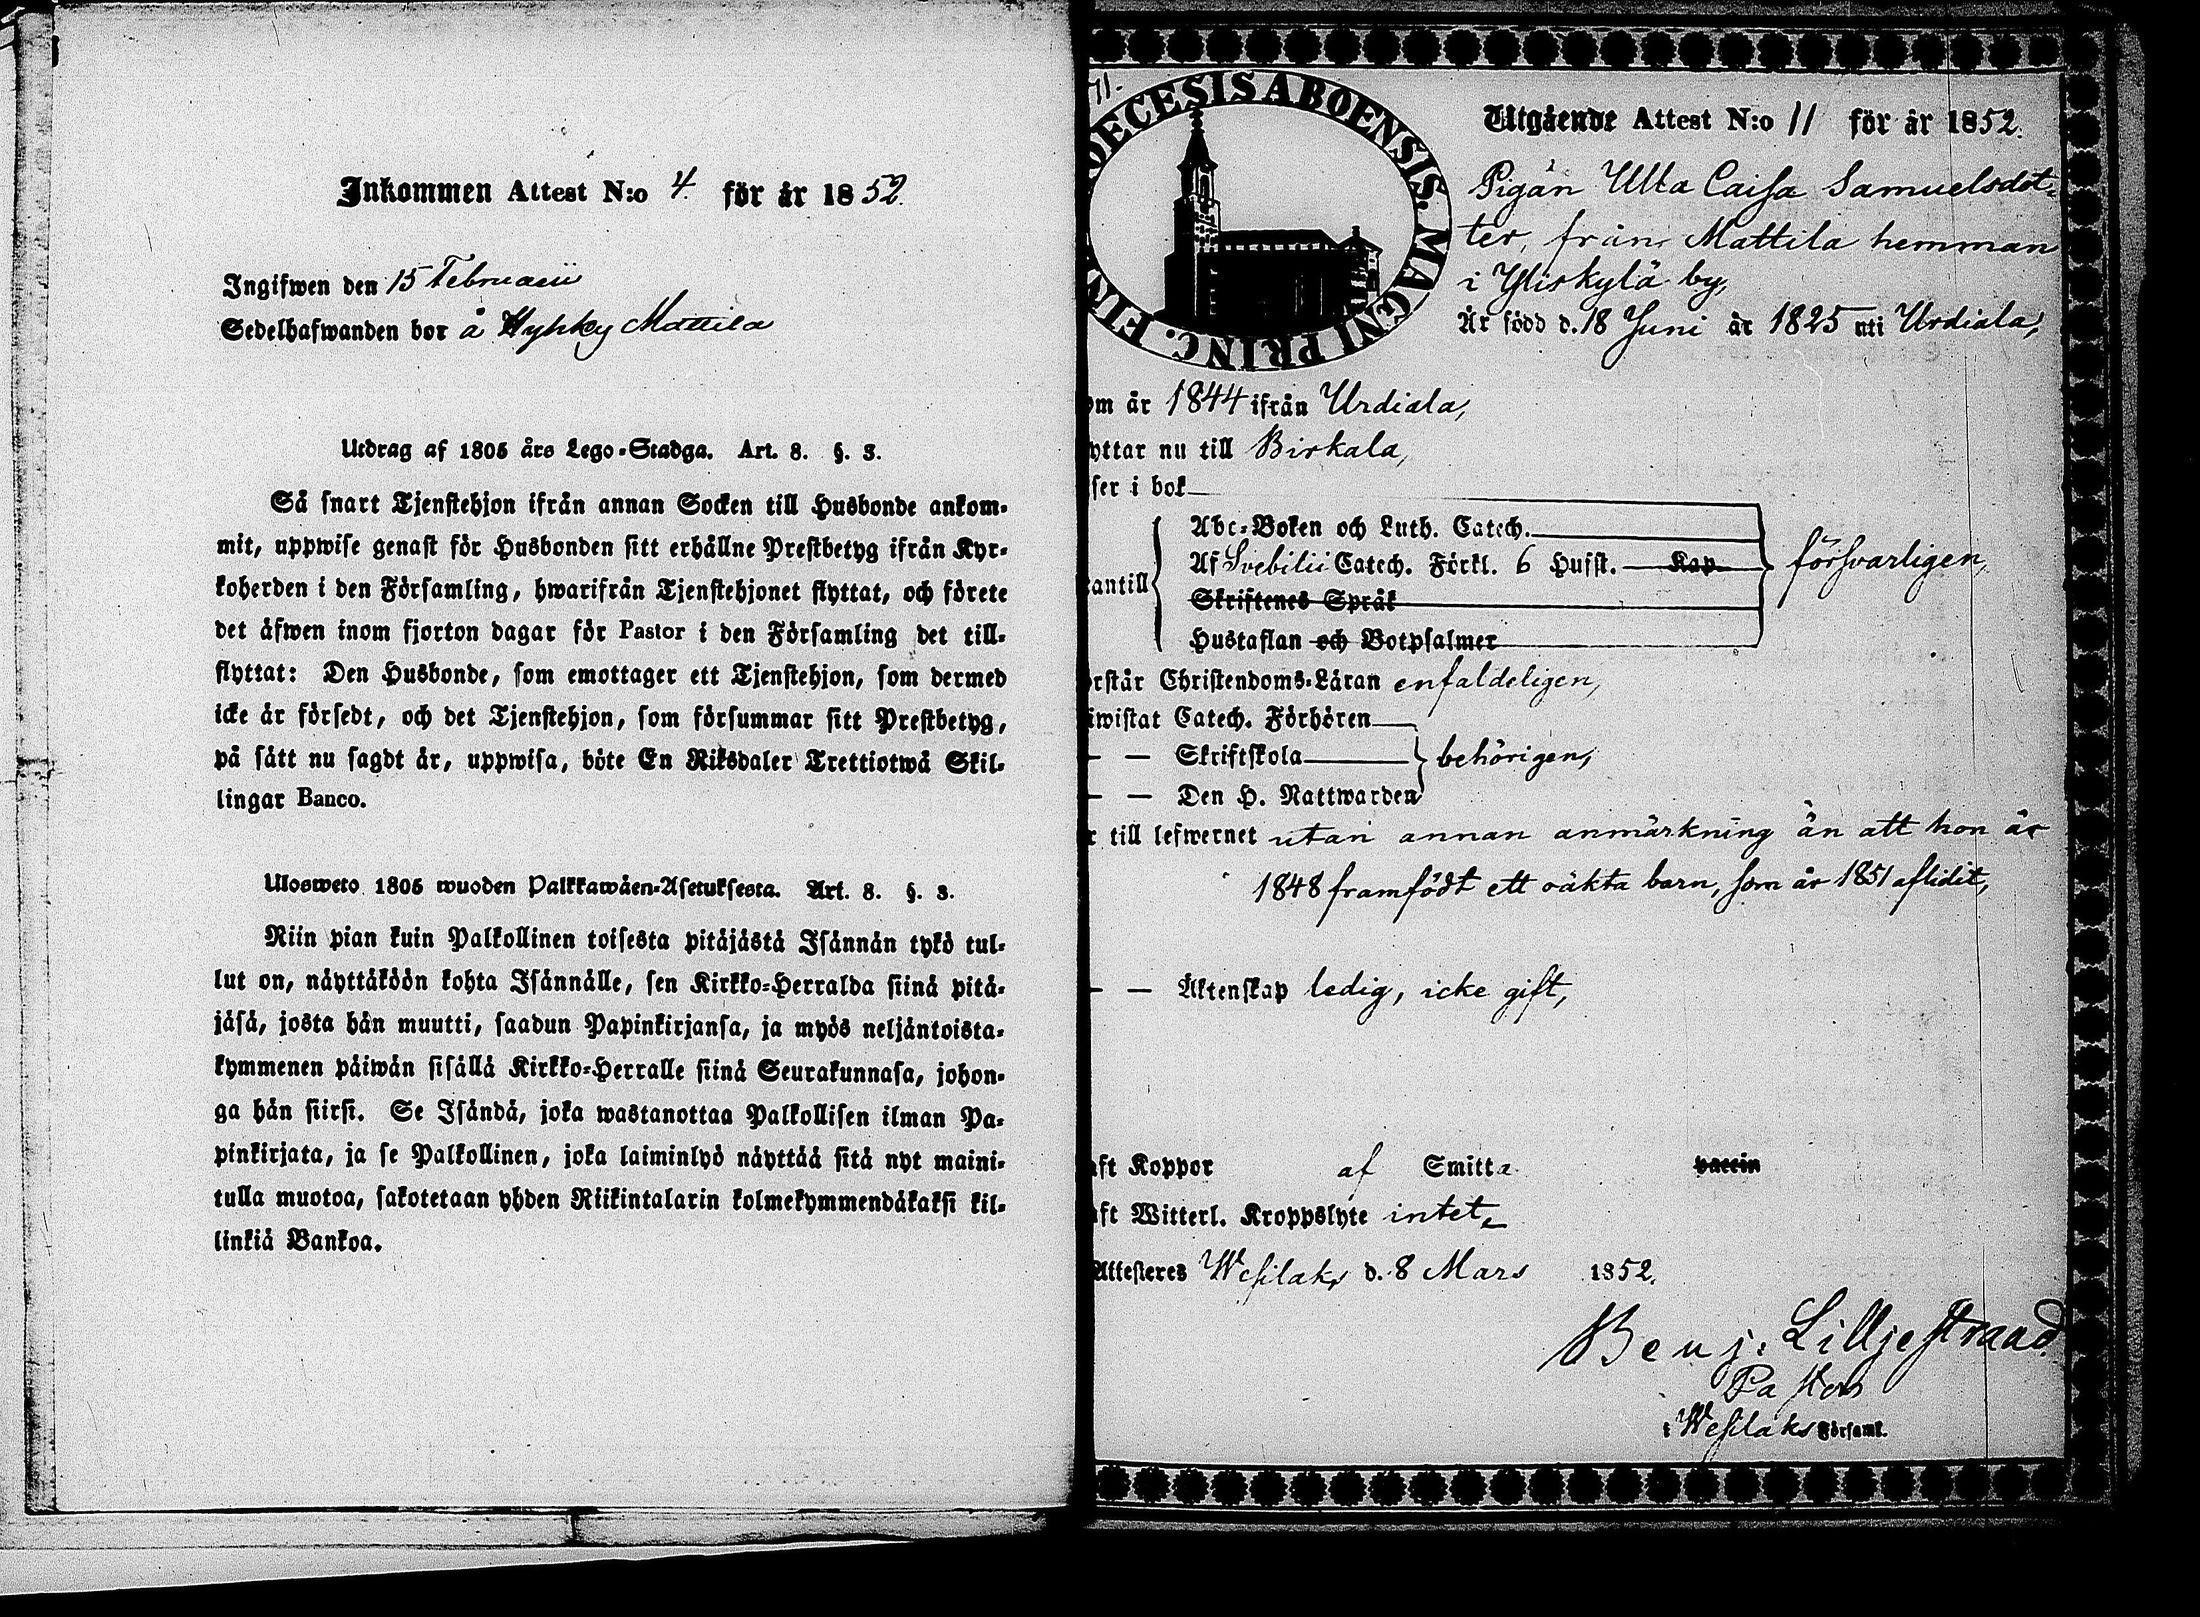 Inkommen Attest N:o 4. för år 1852.
Ingifwen den 15 Februarii
Sedelhafwanden bor å Hyhky Mattila
Utdrag af 1805 års Lego-Stadga. Art. 8. §. 3.
Så snart Tjenstehjon ifrån annan Socken till Husbonde ankom-
mit, uppwise genast för Husbonden sitt erhållne Prestbetyg ifrån Kyr-
koherden i den Församling, hwarifrån Tjenstehjonet flyttat, och förete
det äfwen inom fjorton dagar för Pastor i den Församling det till-
flyttat: Den Husbonde, som emottager ett Tjenstehjon, som dermed
icke är försedt, och det Tjenstehjon, som försummar sitt Prestbetyg,
på sätt nu sagdt är, uppwisa, böte En Riksdaler Trettiotwå Skil-
lingar Banco.
Ulosweto 1805 wuoden Palkkawäen-Asetuksesta. Art. 8. §. 3.
Niin pian kuin Palkollinen toisesta pitäjästä Isännän tykö tul-
lut on, näyttäköön kohta Isännälle, sen Kirkko-Herralda siinä pitä-
jäsä, josta hän muutti, saadun Papinkirjansa, ja myös neljäntoista-
kymmenen päiwän sisällä Kirkko-Herralle siinä Seurakunnasa, johon-
ga hän siirsi. Se Isändä, joka wastanottaa Palkollisen ilman Pa-
pinkirjata, ja se Palkollinen, joka laiminlyö näyttää sitä nyt maini-
tulla muotoa, sakotetaan yhden Riikintalarin kolmekymmendäkaksi kil-
linkiä Bankoa.
11.
ECESIS ABOENSIS. MAGNI PRINC. FIN
Utgående Attest N:o 11 för år 1852.
Pigan Ulla Caisa Samuelsdot-
ter, från Mattila hemman
i Yliskylä by,
Är född d. 18 Juni år 1825 uti Urdiala,
om år 1844 ifrån Urdiala,
yttar nu till Birkala,
ser i bok
Abc-Boken och Luth. Catech.
Af Svebilii Catech. Förkl. 6 Hufst. Kap. försvarligen,
antill
Skriftenes Språk
Hustaflan och Botpsalmer
rstår Christendoms-Läran enfaldeligen,
iwistat Catech. Förhören
— — Skriftskola behörigen,
— — Den H. Nattwarden
r till lefwernet utan annan anmärkning än att hon år
1848 framfödt ett oäkta barn, som år 1851 aflidit,
— — Äktenskap ledig, icke gift,
aft Koppor af Smitta vaccin
aft Witterl. Kroppslyte intet,
Attesteres Wesilaks d. 8 Mars 1852.
Benj. Lilljestrand.
Pastor
i Wesilaks Församl.